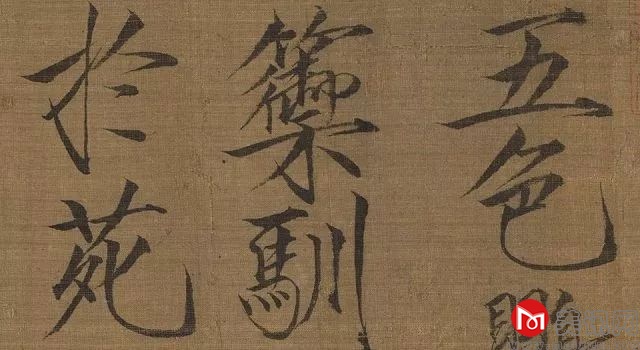 五色
籞馴
扵苑